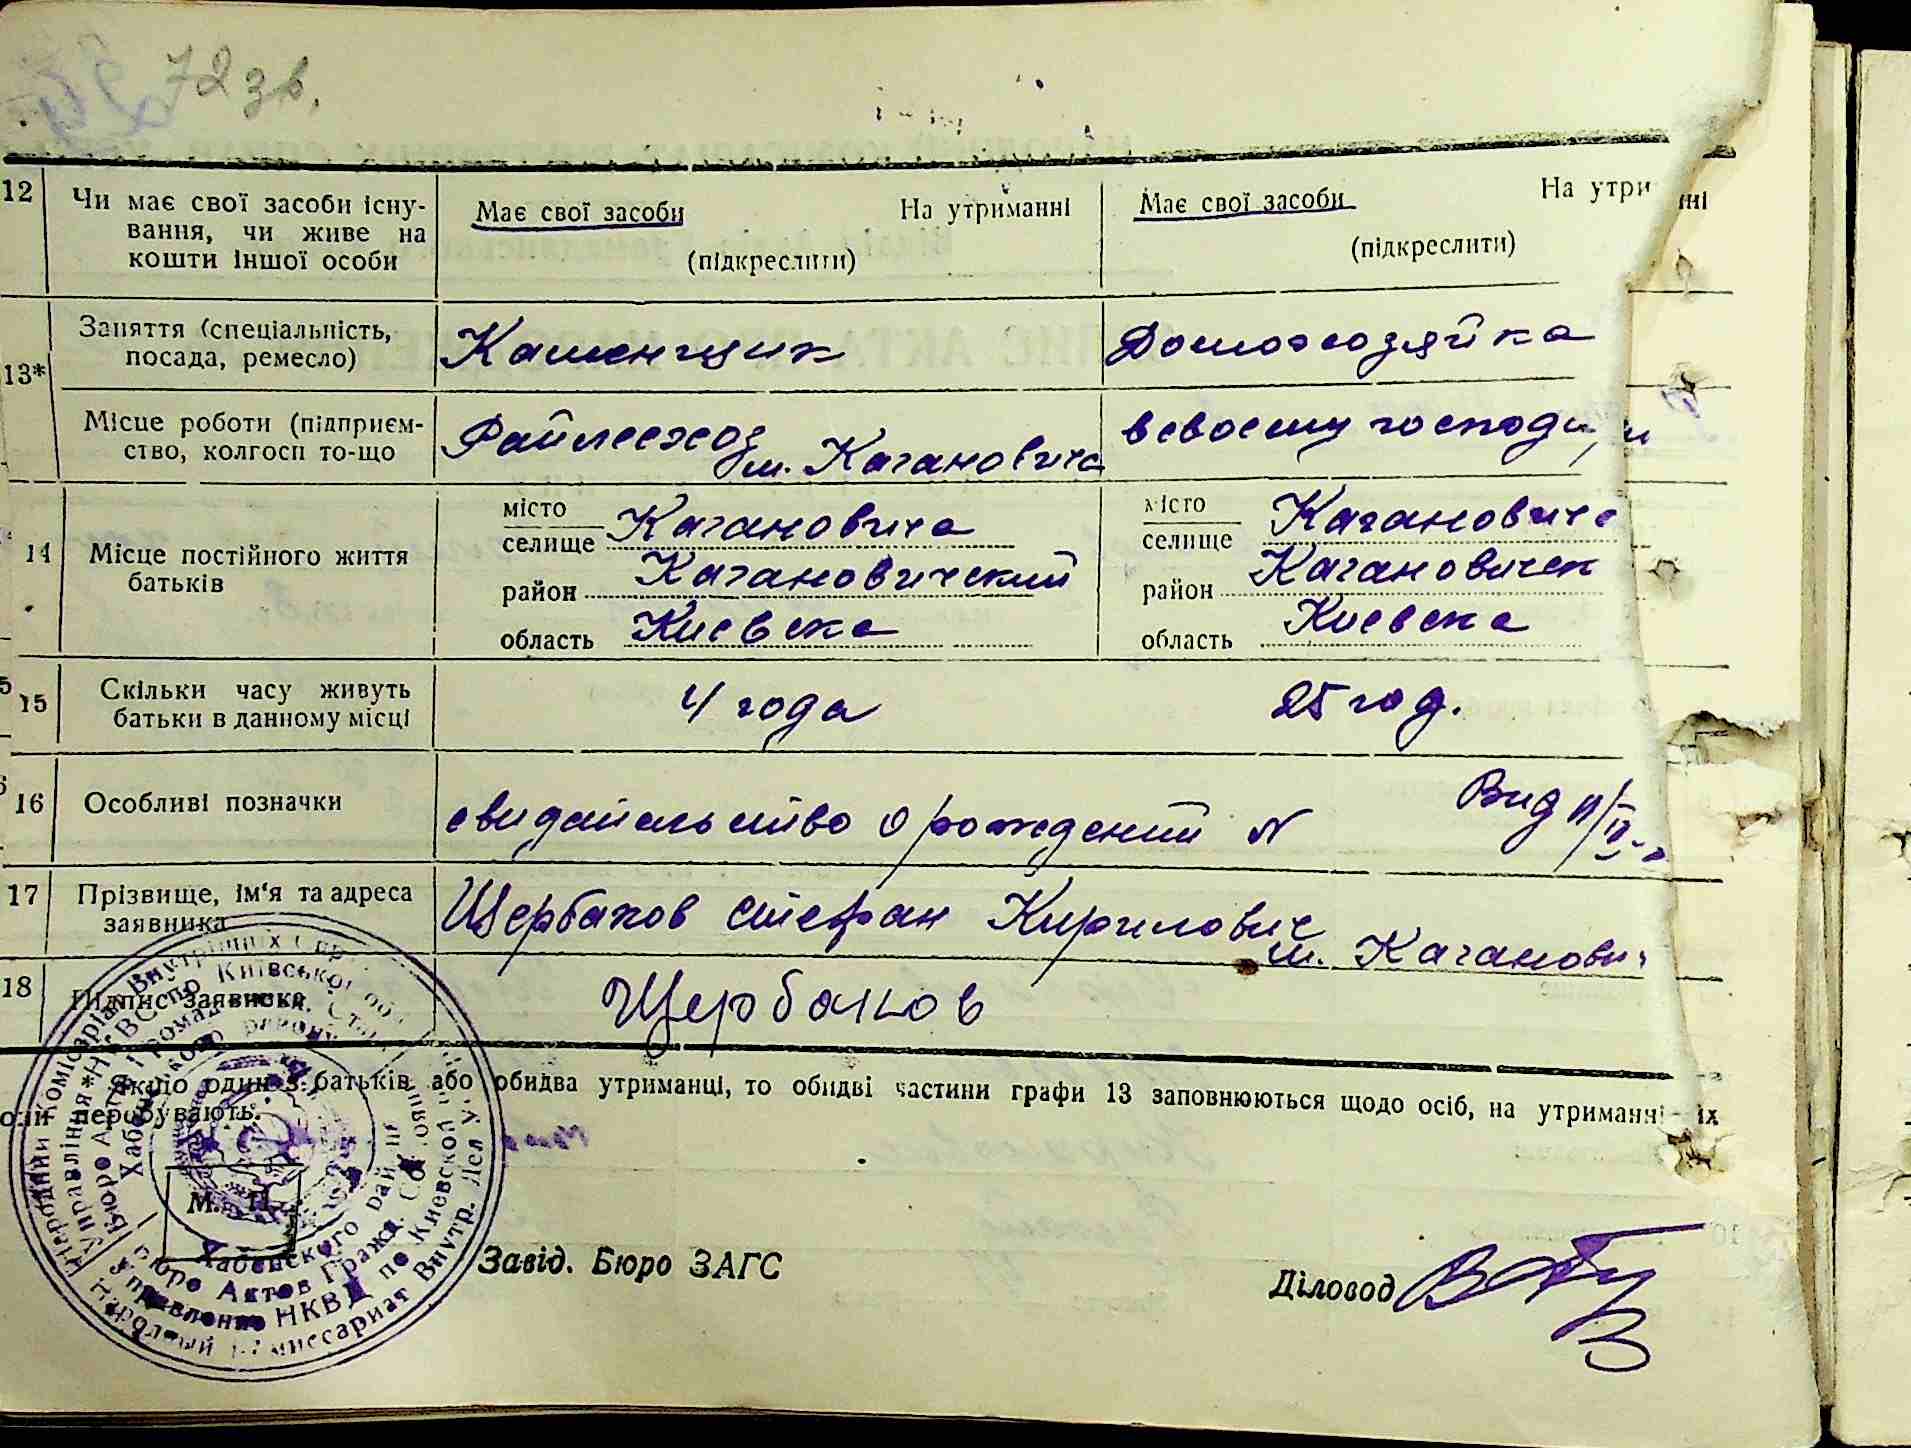 72 зв.
12 Чи має свої засоби існу-
вання, чи живе на
кошти іншої особи
Має свої засоби На утриманні
(підкреслити)
Має свої засоби На утри нні
(підкреслити)
13* Заняття (спеціальність,
посада, ремесло)
Каменщик
Домохозяйка
Місце роботи (підприєм-
ство, колгосп то-що
Райлесхоз
м. Кагановича
в своему господ
14 Місце постійного життя
батьків
місто
селище Кагановича
район Кагановический
область Киевска
місто
селище Кагановича
район Кагановическ
область Киевска
15 Скільки часу живуть
батьки в данному місці
4 года
25 год.
16 Особливі позначки
свидательство о рождений N
Вид 11/IV
17 Прізвище, ім'я та адреса
заявника
Щербаков Стефан Кирилович
м. Каганович
18 Підпис заявника.
Щербаков
* Якщо один з батьків або обидва утриманці, то обидві частини графи 13 заповнюються щодо осіб, на утриманні їх
вони перебувають.
М. П.
Завід. Бюро ЗАГС
Діловод
Хабенского района
Бюро Актов Гражд.
Управление НКВД по Киевской
Народный Комиссариат Внутр. Дел